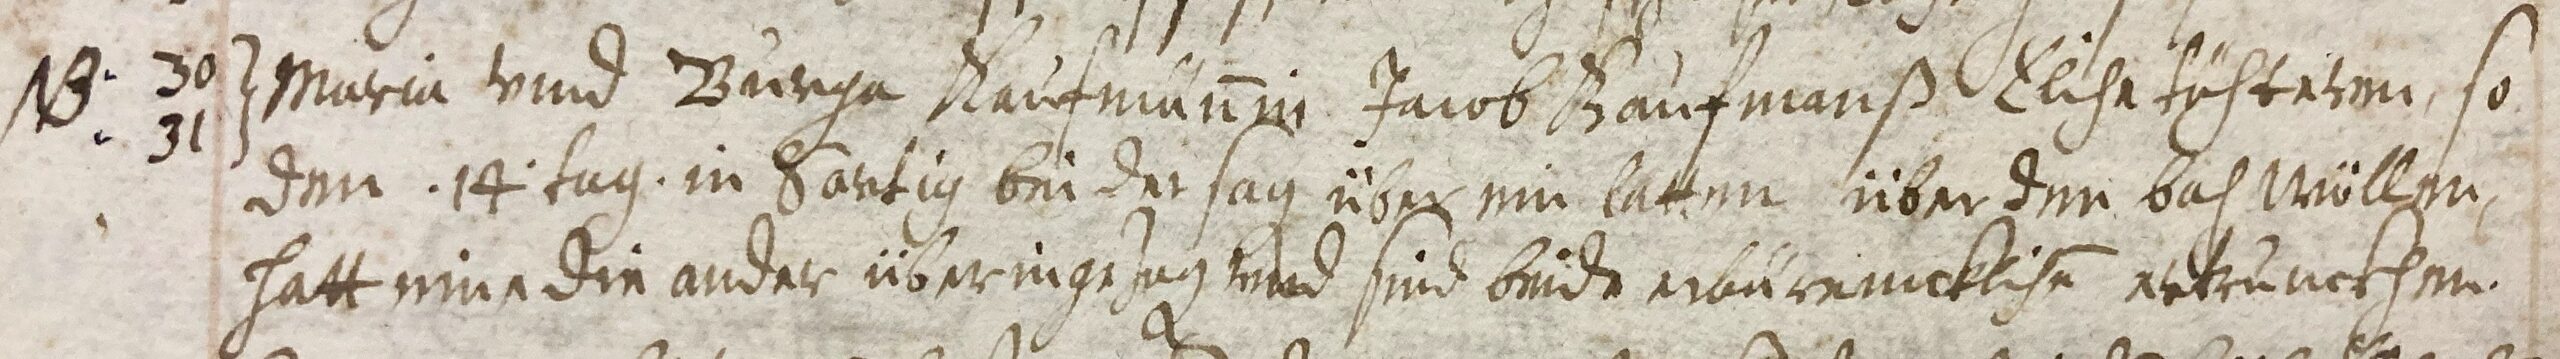 NB. 30 } Maria vnd Burga Kaufmännin Jacob Kaufmanß Eliche töchteren, so
31 den .14. tag. in Hartig bei der sag über ein latten über den bach wöllen,
hatt eine die ander überingezog vnd sind beide erbärmcklichen ertrunckhen.